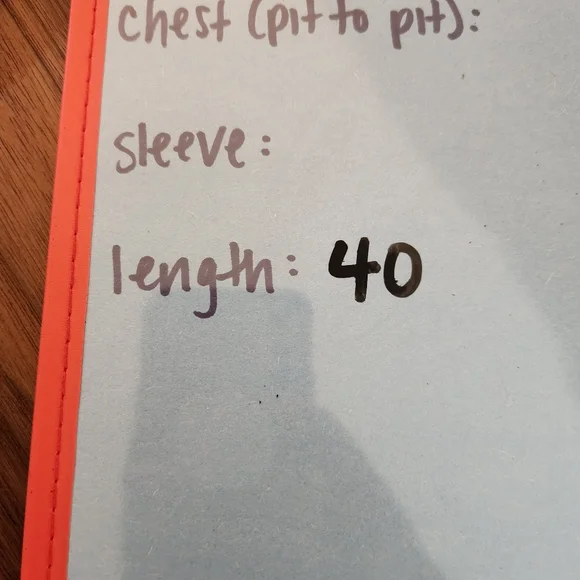 chest (pit to pit):
sleeve:
length: 40